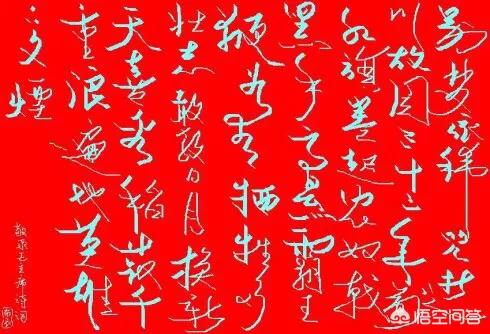 别梦依稀咒逝
川故园三十二年前
红旗卷起农奴戟
黑手高悬霸主
鞭为有牺牲多
壮志敢教日月换新
天喜看稻菽千
重浪遍地英雄
下夕烟
敬录毛主席诗词
悟空问答